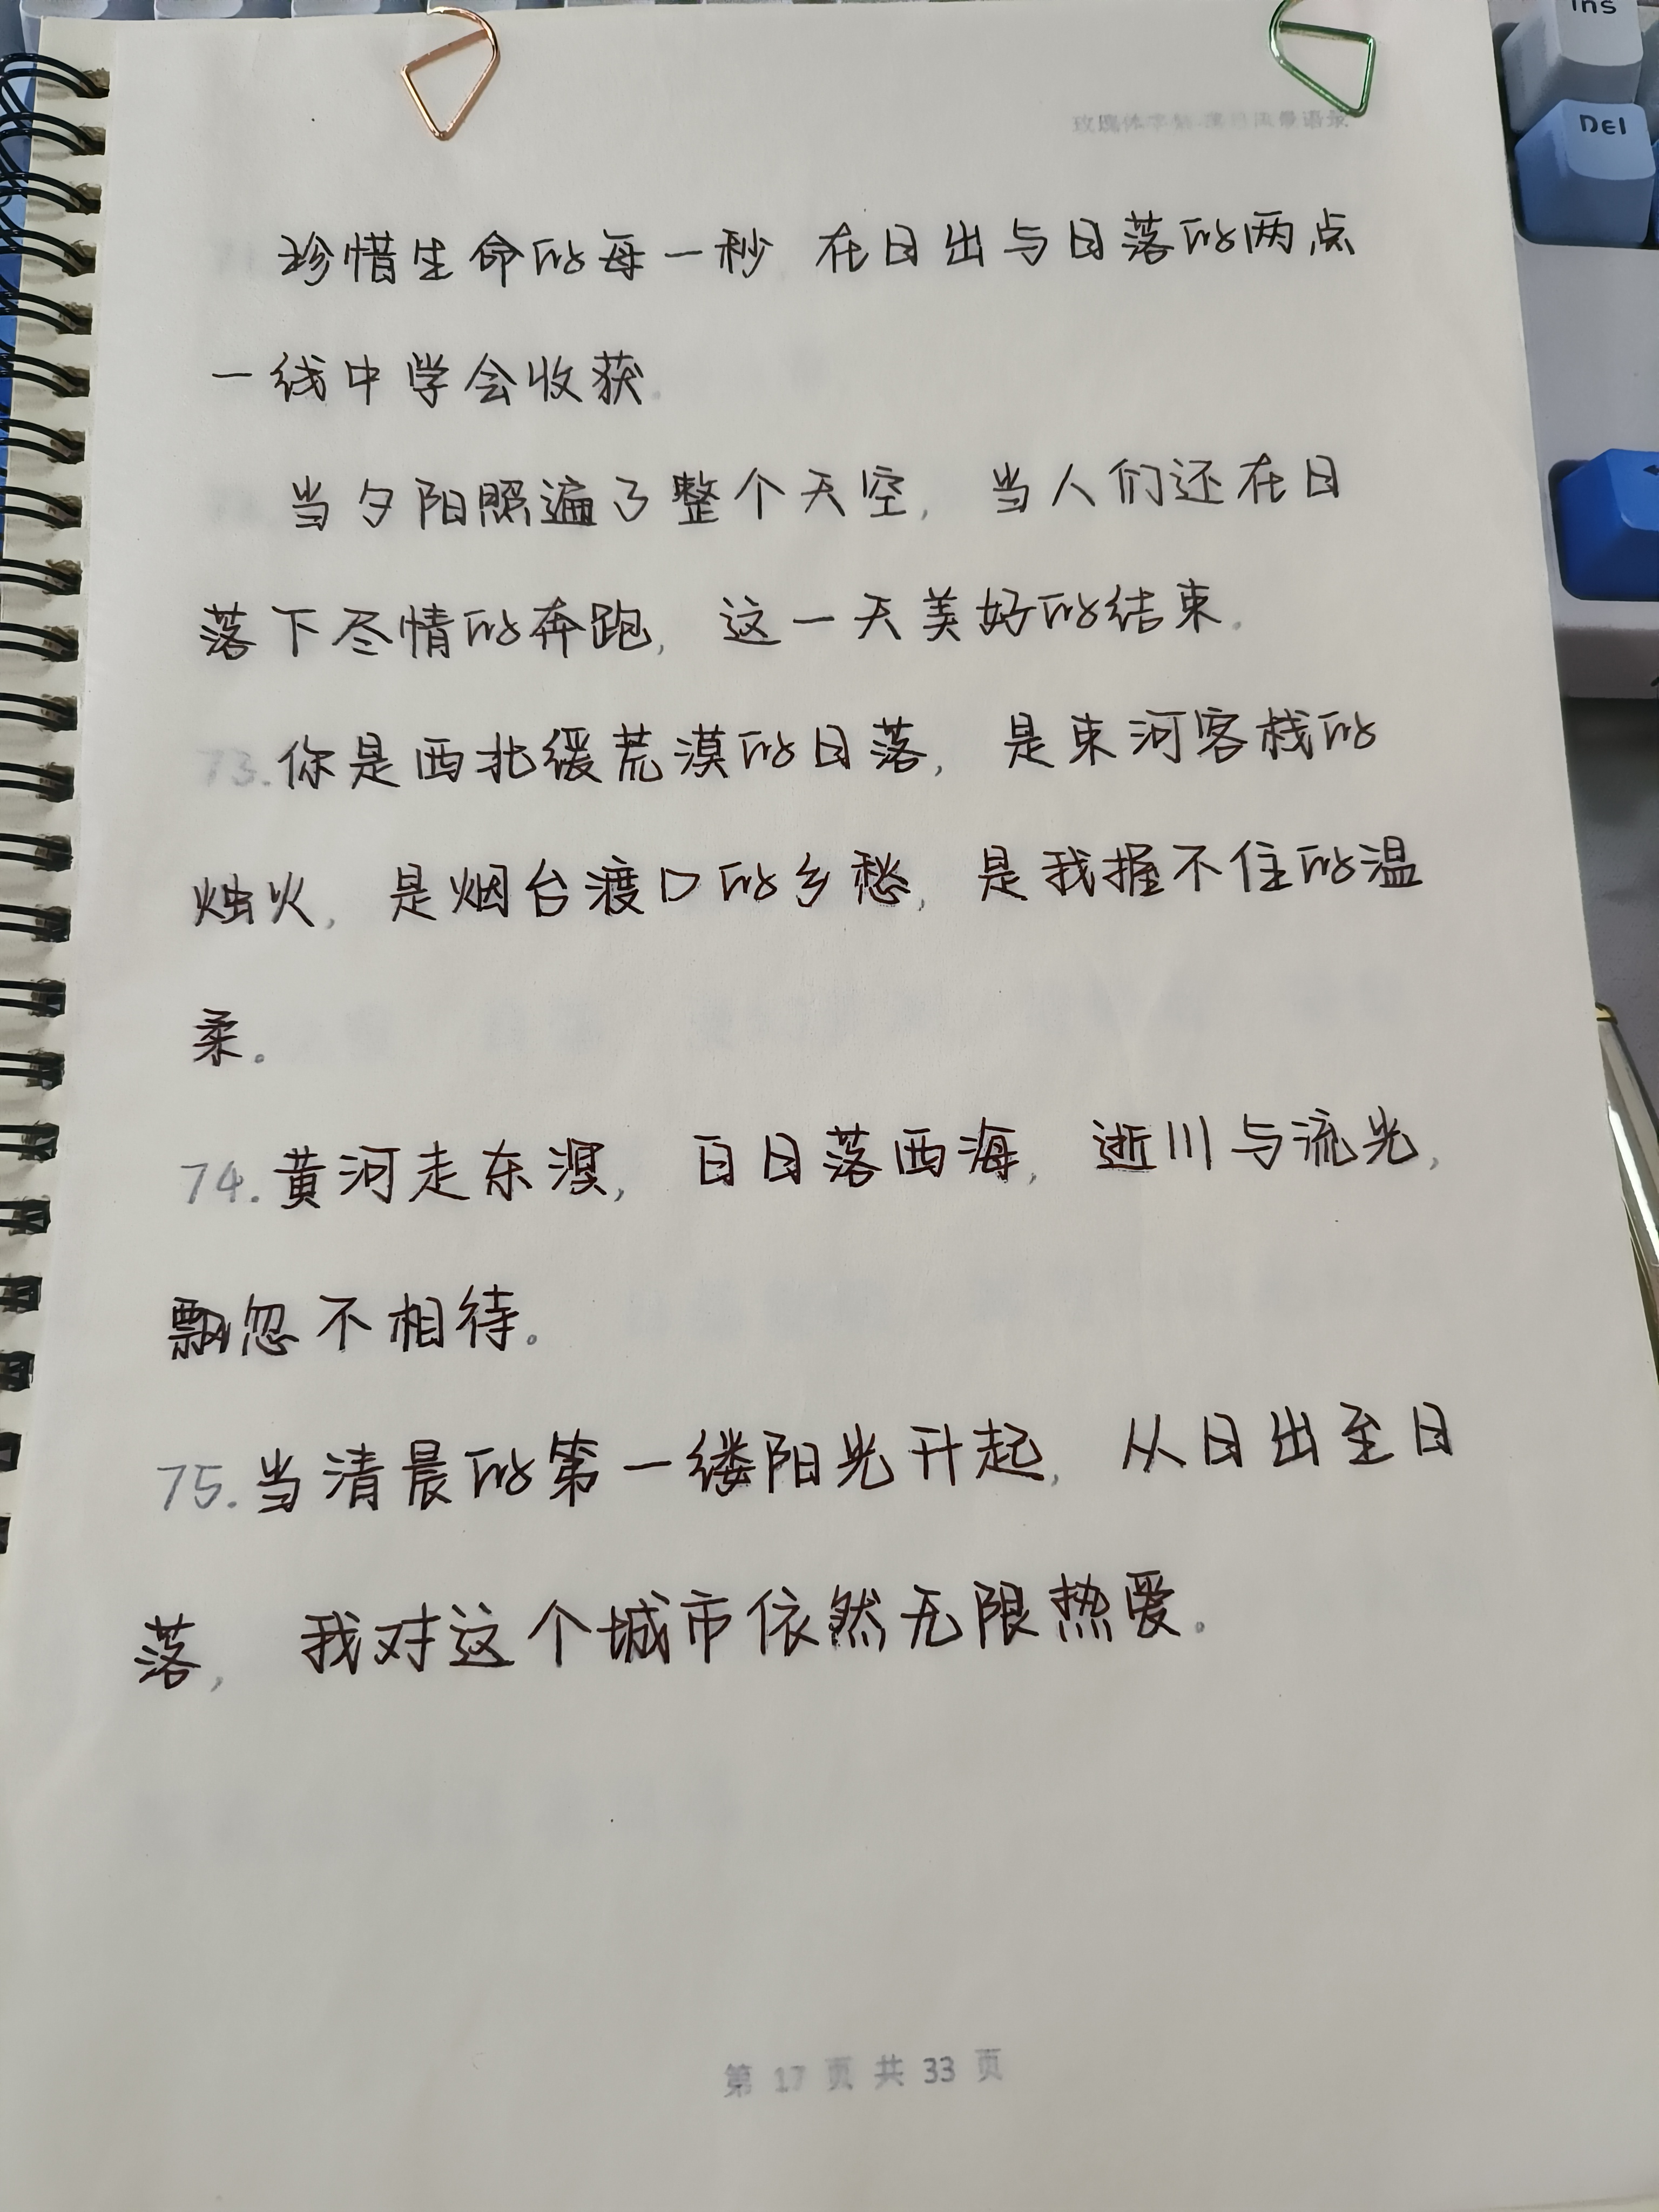 Ins
DEl
珍惜生命的每一秒 在日出与日落的两点
一线中学会收获.
当夕阳照遍了整个天空, 当人们还在日
落下尽情的奔跑, 这一天美好的结束.
73.你是西北缓荒漠的日落, 是束河客栈的
烛火, 是烟台渡口的乡愁, 是我握不住的温
柔。
74.黄河走东溟, 白日落西海, 逝川与流光,
飘忽不相待。
75.当清晨的第一缕阳光升起, 从日出至日
落, 我对这个城市依然无限热爱。
第 17 页 共 33 页